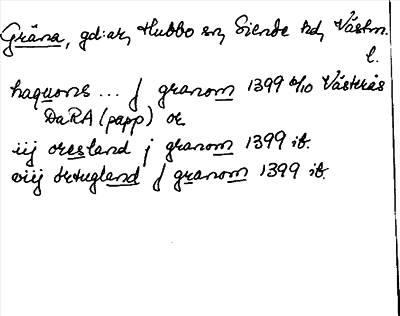 Gräna, gd:ar, Hubbo sn, Siende hd, Västm.
l.
haquons ... j granom 1399 6/10 Västerås
DaRA (papp) or.
iij oresland j granom 1399 ib.
viij ortugland j granom 1399 ib.